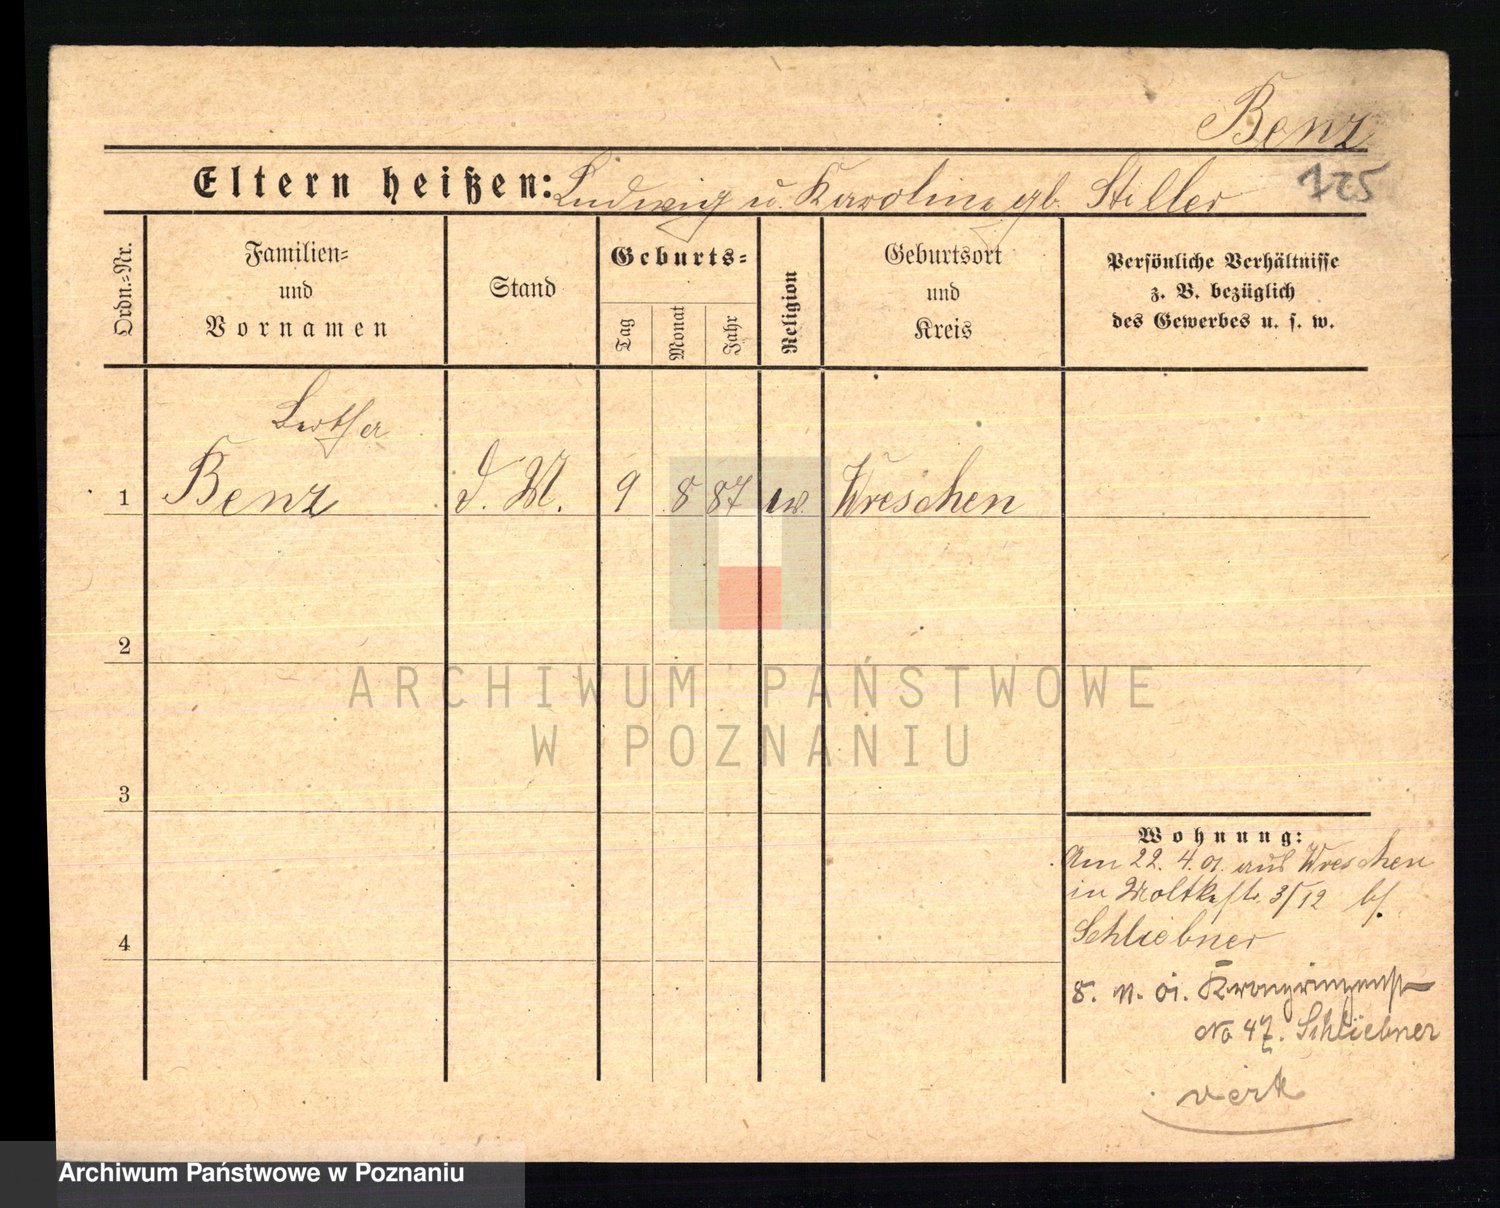 Benz
125
Eltern heißen: Ludwig u. Karoline gb. Stiller
Ordn.-Nr.
Familien-
und
Vornamen
Stand
Geburts-
Tag
Monat
Jahr
Religion
Geburtsort
und
Kreis
Persönliche Verhältnisse
z. B. bezüglich
des Gewerbes u. s. w.
1 Benz d. M. 9 8 87 ev. Wreschen
2
3
4
Wohnung:
Am 22. 4. 01. aus Wreschen
in Moltkestr. 3/12 bf.
Schliebner
8. 11. 01. Kronprinzenst
No 47. Schliebner
verk
ARCHIWUM PAŃSTWOWE
W POZNANIU
Archiwum Państwowe w Poznaniu